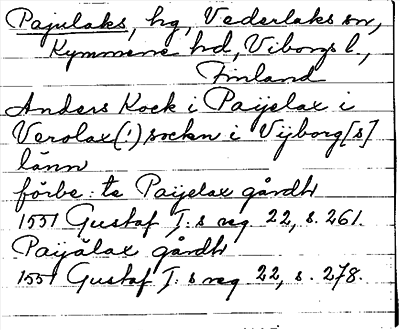 Pajulaks, hg, Vederlaks sn,
Kymmene hd, Viborgs l,
Finland
Anders Kock i Paijelax i
Verolax(!) sockn i Vijborg[s]
länn
förbe: te Paijelax gårdh
1551 Gustaf I:s reg 22, s. 261.
Paijälax gårdh
1551 Gustaf I:s reg 22, s. 278.